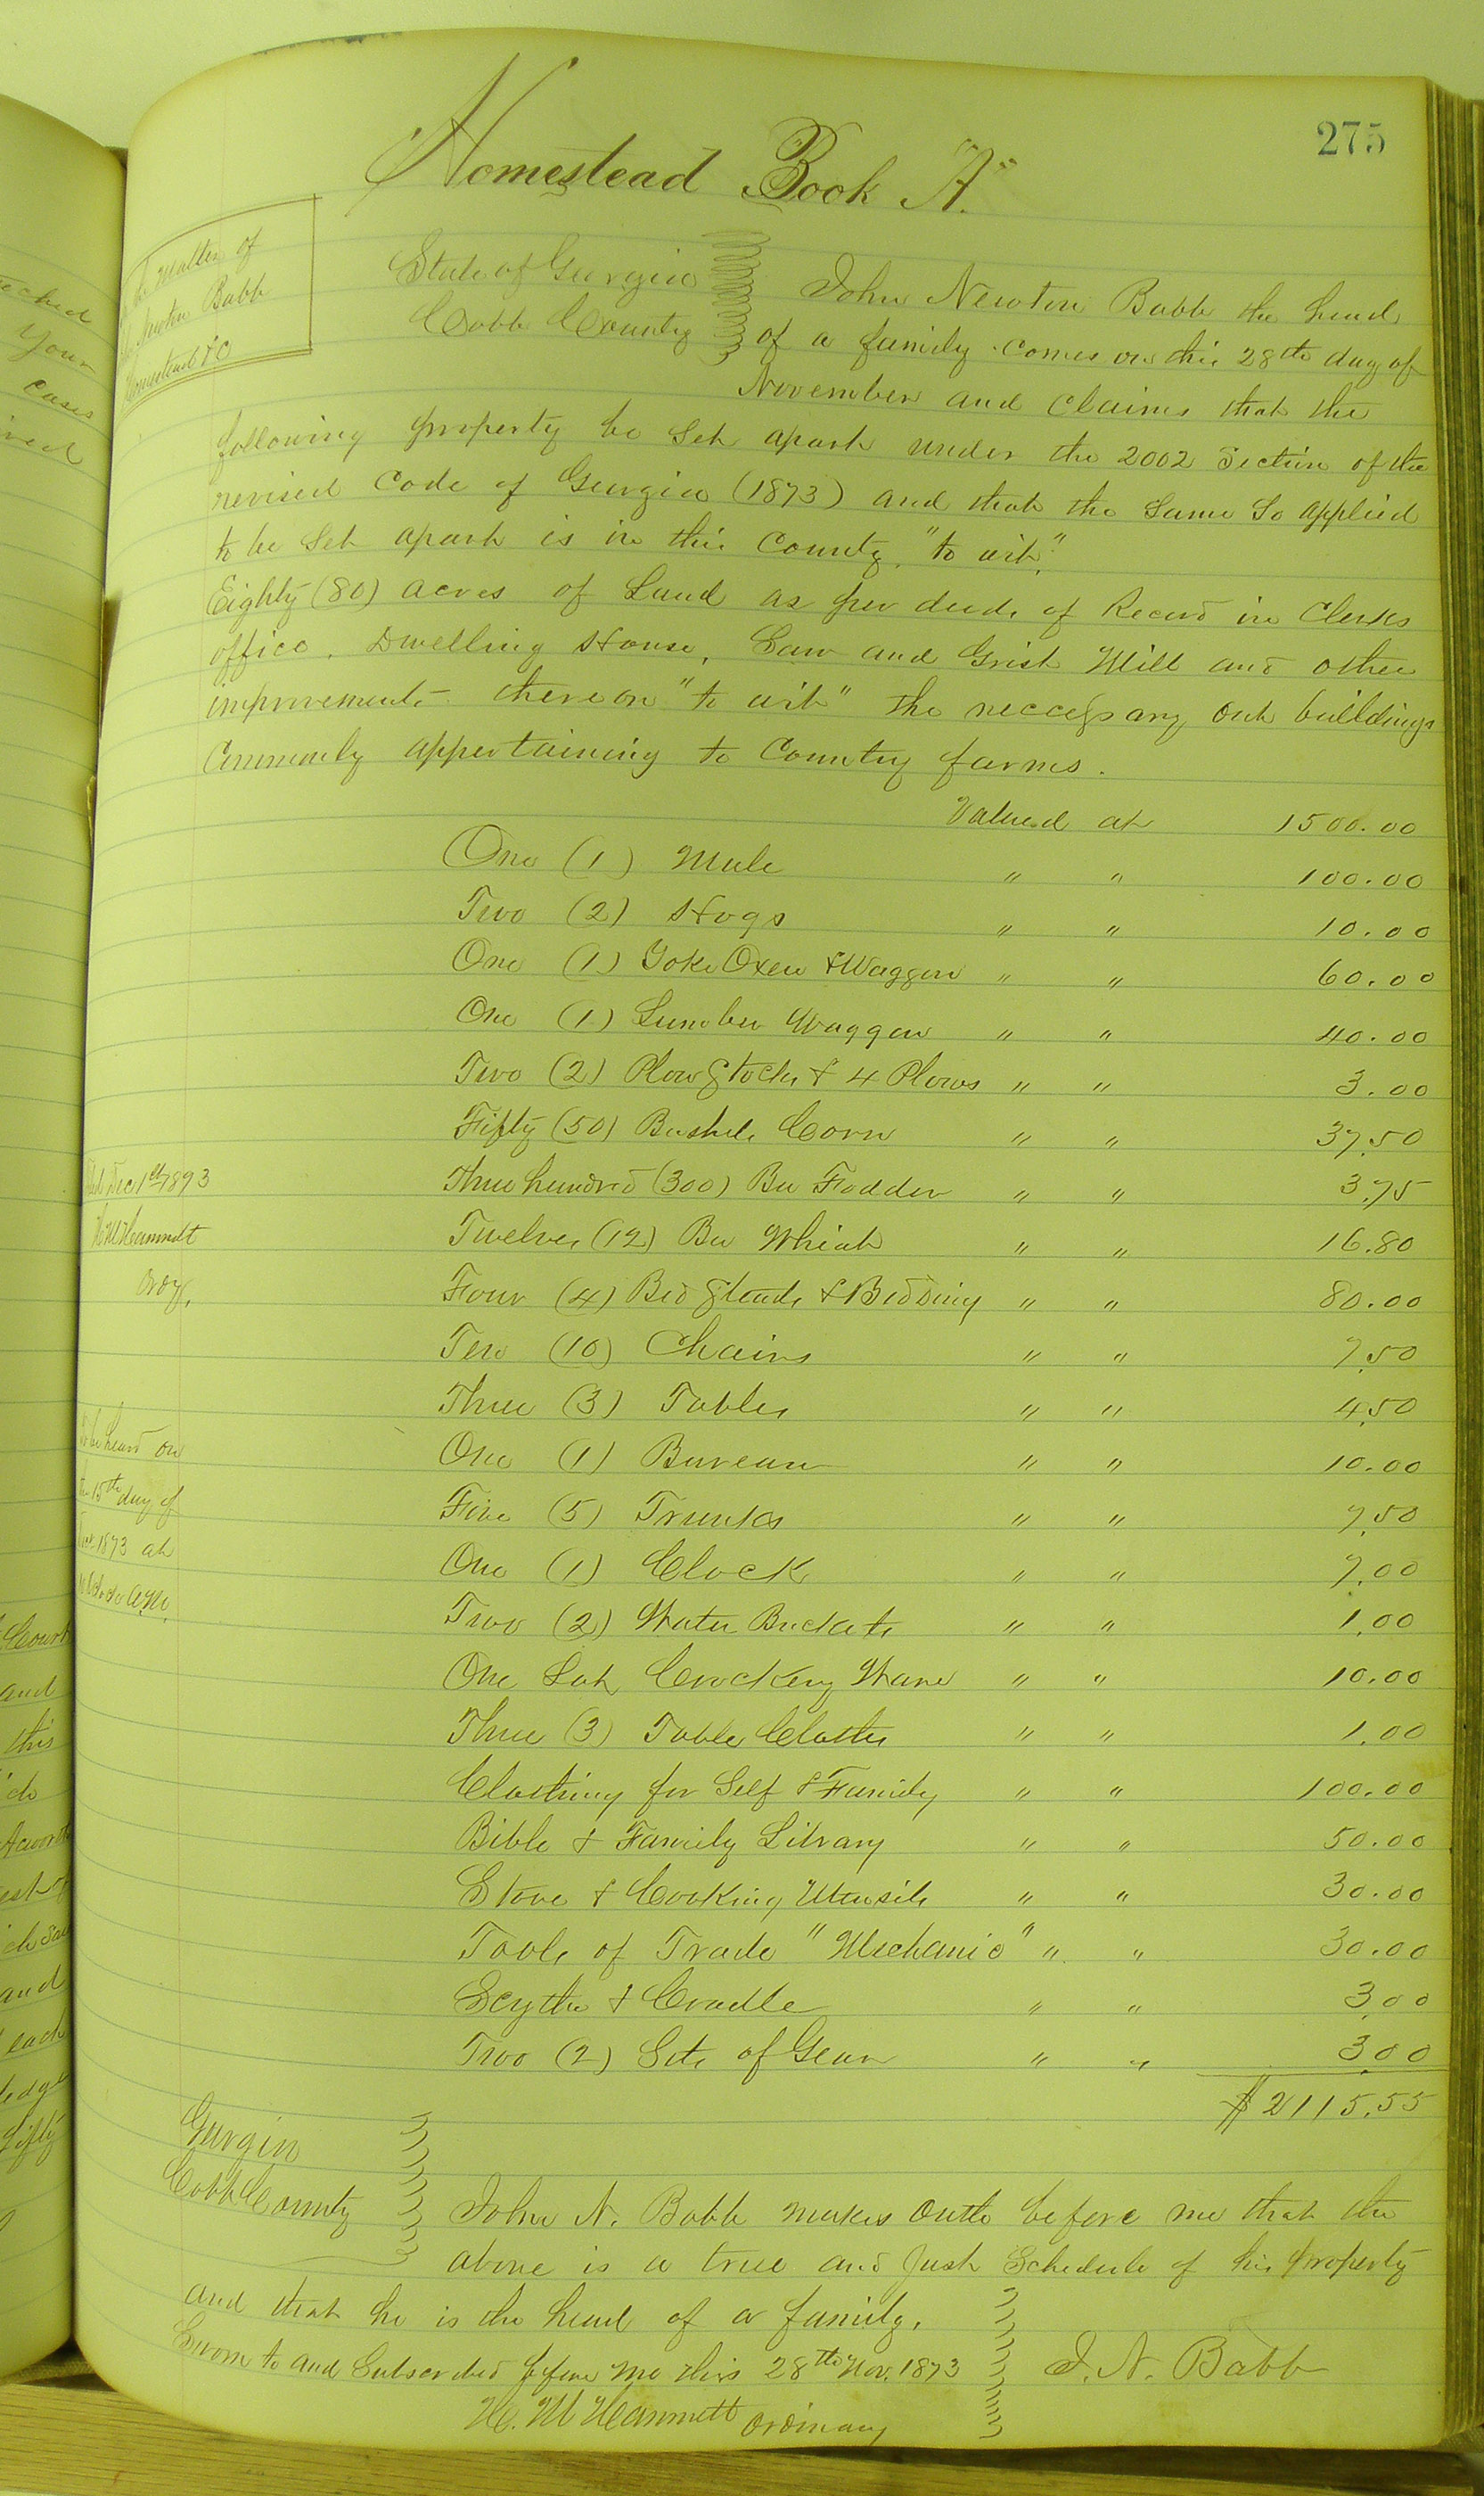 275
Homestead Book "A."
matter of
Newton Babb
Homestead &c
State of Georgia
Cobb County
John Newton Babb the head
of a family comes on this 28th day of
November and claims that the
following property be Set apart under the 2002 Section of the
revised Code of Georgia (1873) and that the Same So applied
to be Set apart is in this County, "to wit,"
Eighty (80) acres of Land as per deeds of Record in Clerks
office, Dwelling House, Saw and Grist Mill and other
improvements thereon "to wit" the neccessary out buildings
Commonly appertaining to Country farms.
Valued at 1500.00
One (1) Mule " " 100.00
Two (2) Hogs " " 10.00
One (1) Yoke Oxen & Waggon " " 60.00
One (1) Lumber Waggon " " 40.00
Two (2) Plow Stocks & 4 Plows " " 3.00
Fifty (50) Bushels Corn " " 37.50
Three hundred (300) Bu Fodder " " 3.75
Twelve (12) Bu Wheat " " 16.80
Four (4) Bed Steads & Bedding " " 80.00
Ten (10) Chairs " " 7.50
Three (3) Tables " " 4.50
One (1) Bureau " " 10.00
Five (5) Trunks " " 7.50
One (1) Clock " " 7.00
Two (2) Water Buckets " " 1.00
One Lot Crockery Ware " " 10.00
Three (3) Table Cloths " " 1.00
Clothing for Self & Family " " 100.00
Bible & Family Library " " 50.00
Stove & Cooking Utensils " " 30.00
Tools of Trade "Mechanic" " " 30.00
Scythe & Cradle " " 3.00
Two (2) Sets of Gear " " 3.00
$2115.55
Dec 1st 1893
H M Hammett
Ordy.
To be heard on
the 15th day of
Dec 1873 at
A.M.
Georgia
Cobb County
John N. Babb makes Oath before me that the
above is a true and Just Schedule of his property
and that he is the head of a family.
Sworn to and Subscribed before me this 28th Nov. 1873
J. N. Babb
H. M Hammett Ordinary
your
cases
Court
and
this
and
each
fifty